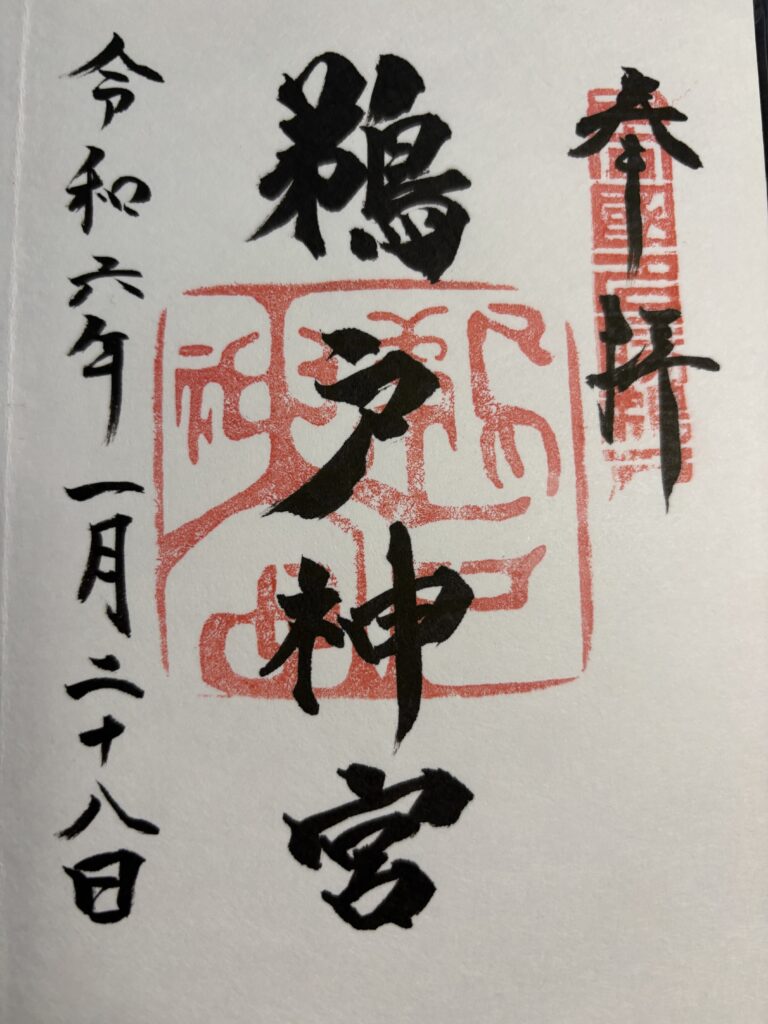 奉拝
鵜戸神宮
令和六年一月二十八日